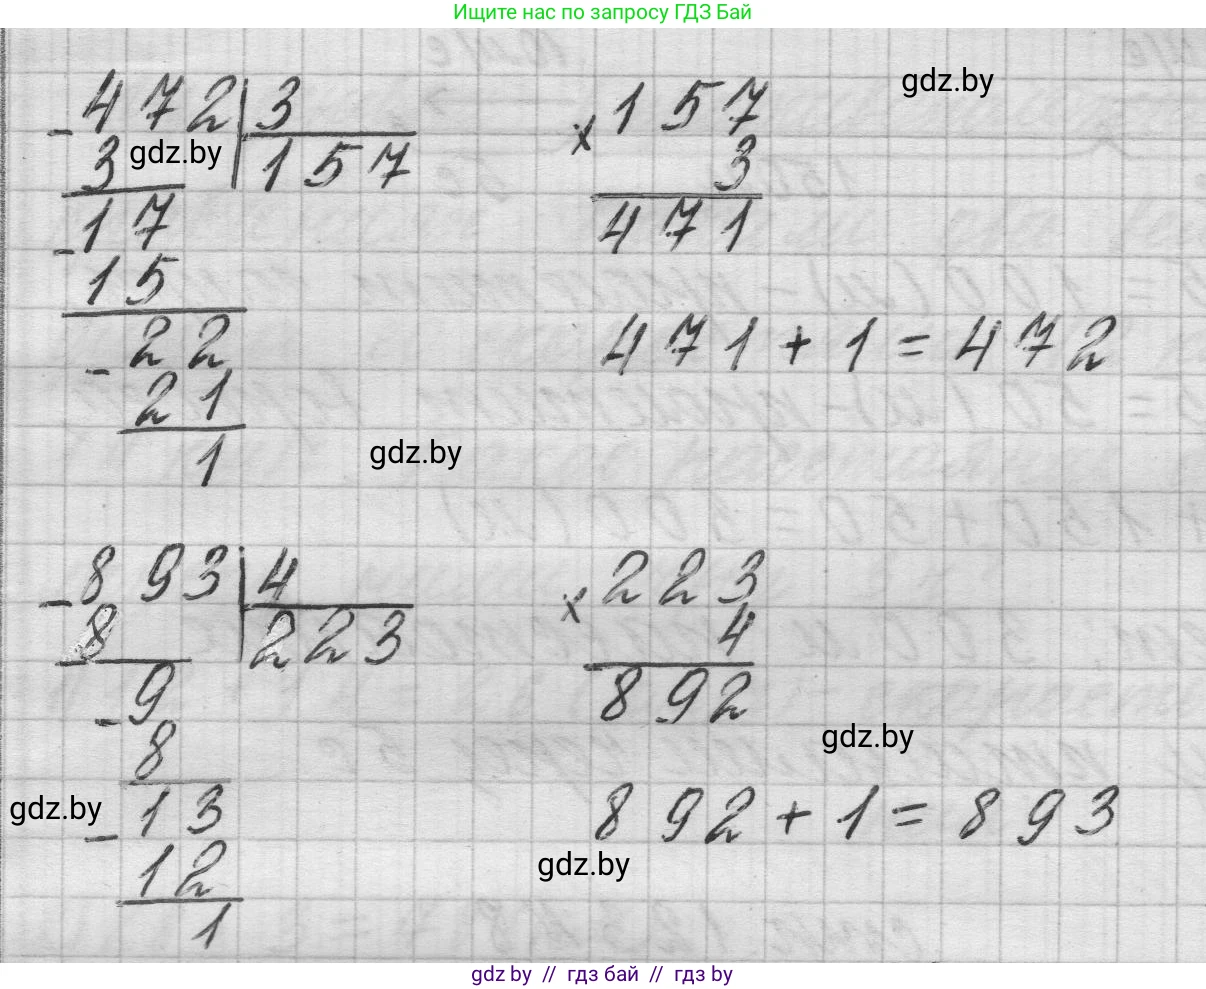 Ищите нас по запросу ГДЗ Бай
- 472 | 3
3 157
- 17
15
- 22
21
1
× 157
3
471
471 + 1 = 472
- 893 | 4
8 223
- 9
8
- 13
12
1
× 223
4
892
892 + 1 = 893
gdz.by
gdz.by
gdz.by
gdz.by
gdz.by
gdz.by
gdz by // гдз бай // гдз by